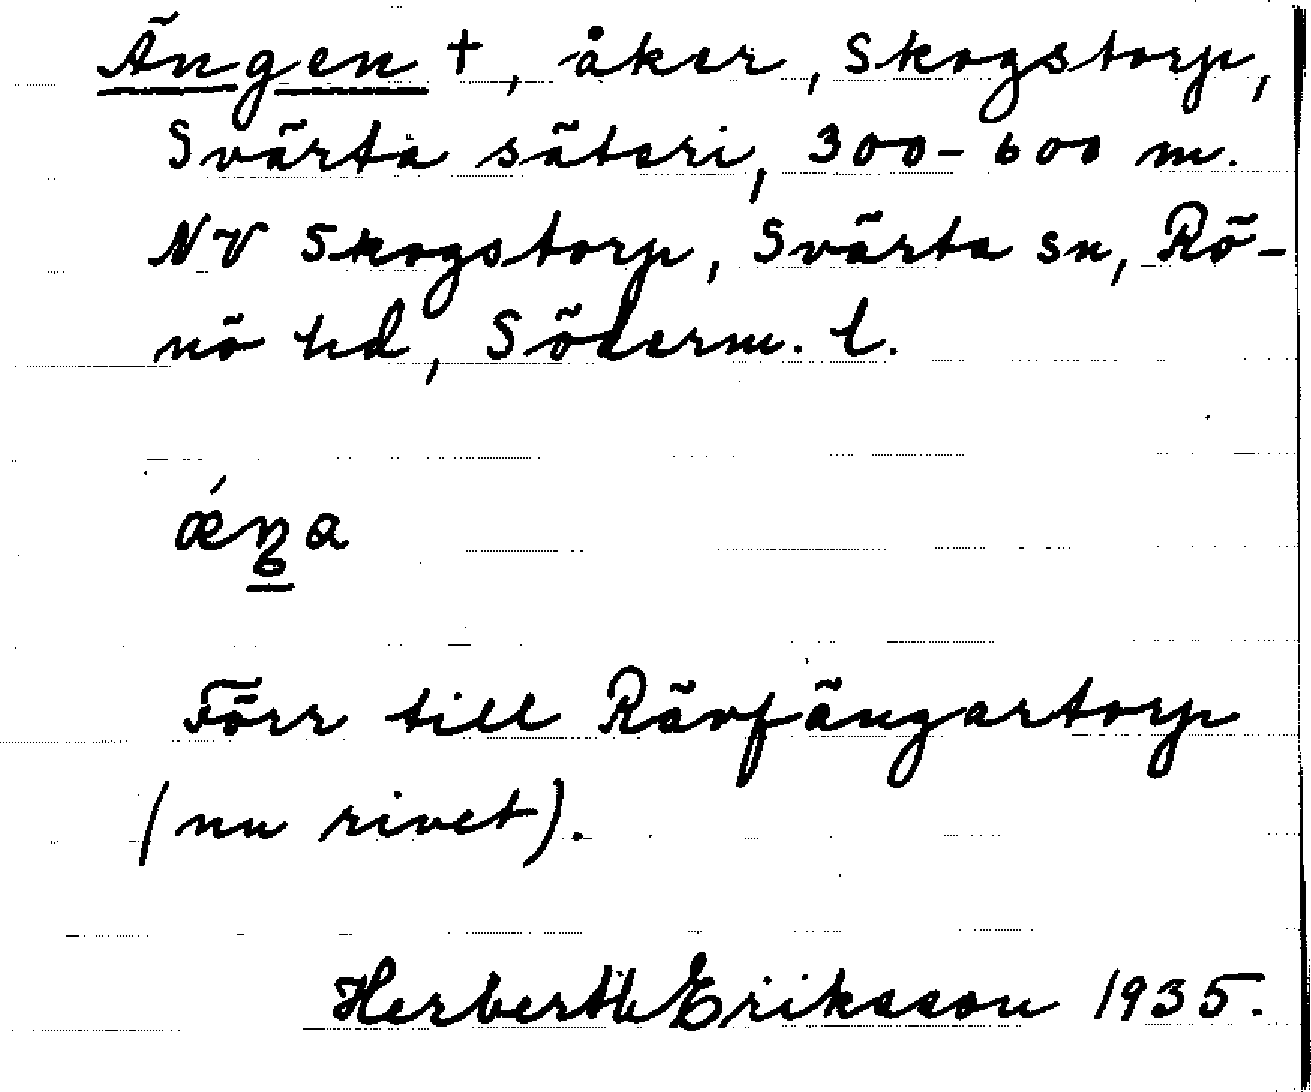 Ängen †, åker, Skogstorp,
Svärta säteri, 300-600 m.
NV Skogstorp, Svärta sn, Rö-
nö hd, Söderm. l.
Förr till Rävfängartorp
(nu rivet).
Herberth Eriksson 1935.